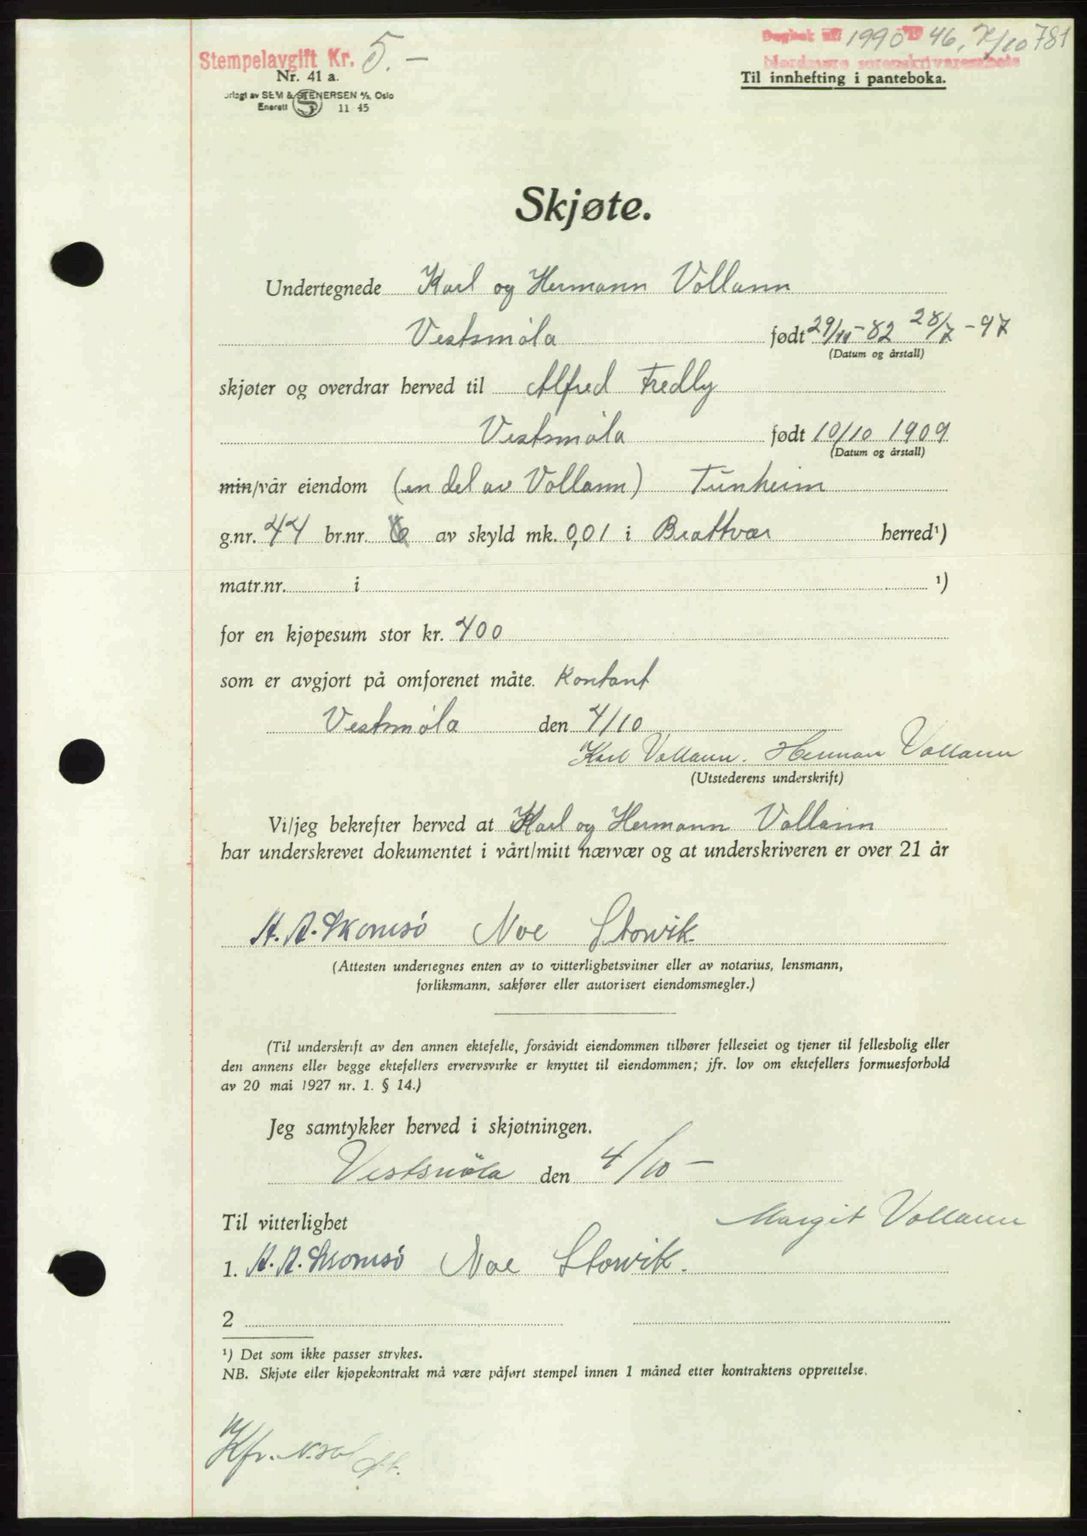 Stempelavgift Kr. 5.-
Dagbok nr. 1990 19 46, 7/10 781
Nordmøre sorenskriverembete
Nr. 41 a.
Forlagt av SEM & STENERSEN A/S, Oslo
Enerett S 11 45
Til innhefting i panteboka.
Skjøte.
Undertegnede Karl og Hermann Vollann
Vestsmøla født 29/10-82 28/7-97
(Datum og årstall)
skjøter og overdrar herved til Alfred Fredly
Vestsmøla født 10/10 1909
(Datum og årstall)
min/vår eiendom (en del av Vollann) Tunheim
g.nr. 44 br.nr. av skyld mk. 0,01 i Brattvær herred¹)
matr.nr. i ¹)
for en kjøpesum stor kr. 400
som er avgjort på omforenet måte. Kontant
Vestsmøla den 4/10
Karl Vollann. Herman Vollann
(Utstederens underskrift)
Vi/jeg bekrefter herved at Karl og Hermann Vollann
har underskrevet dokumentet i vårt/mitt nærvær og at underskriveren er over 21 år
A. A. Skomsø Noe Storvik
(Attesten undertegnes enten av to vitterlighetsvitner eller av notarius, lensmann,
forliksmann, sakfører eller autorisert eiendomsmegler.)
(Til underskrift av den annen ektefelle, forsåvidt eiendommen tilhører felleseiet og tjener til fellesbolig eller
den annens eller begge ektefellers ervervsvirke er knyttet til eiendommen; jfr. lov om ektefellers formuesforhold
av 20 mai 1927 nr. 1. § 14.)
Jeg samtykker herved i skjøtningen.
Vestsmøla den 4/10 -
Til vitterlighet Margit Vollann
1. A. A. Skomsø Noe Storvik.
2
¹) Det som ikke passer strykes.
NB. Skjøte eller kjøpekontrakt må være påført stempel innen 1 måned etter kontraktens opprettelse.